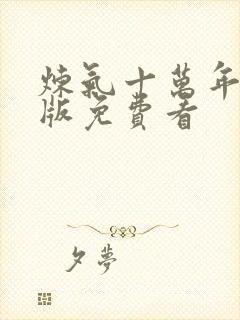 煉氣十萬年
版免費看
夕夢